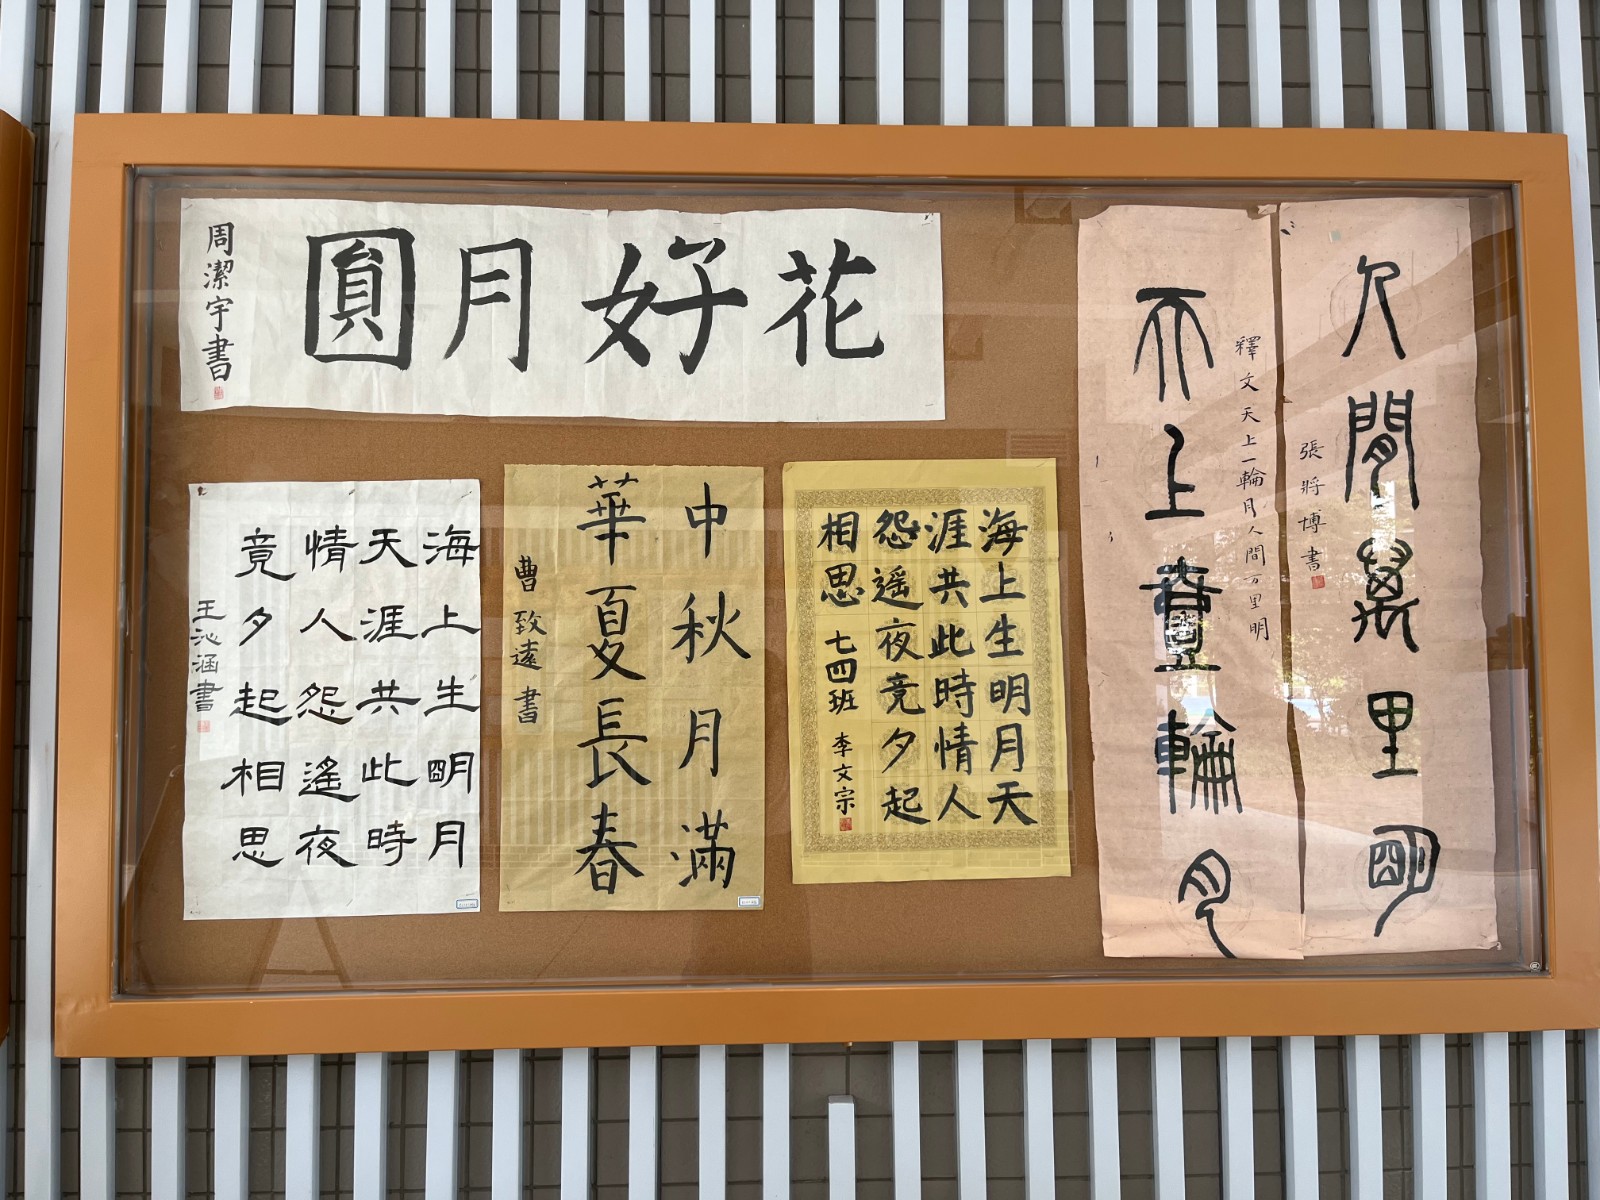 花好月圓
周潔宇書
海上生明月
天涯共此時
情人怨遙夜
竟夕起相思
王沁涵書
中秋月滿
華夏長春
曹致遠書
海上生明月天
涯共此時情人
怨遥夜竟夕起
相思 七四班 李文宗
人間萬里明
張將博書
釋文天上一輪月人間万里明
天上壹輪月